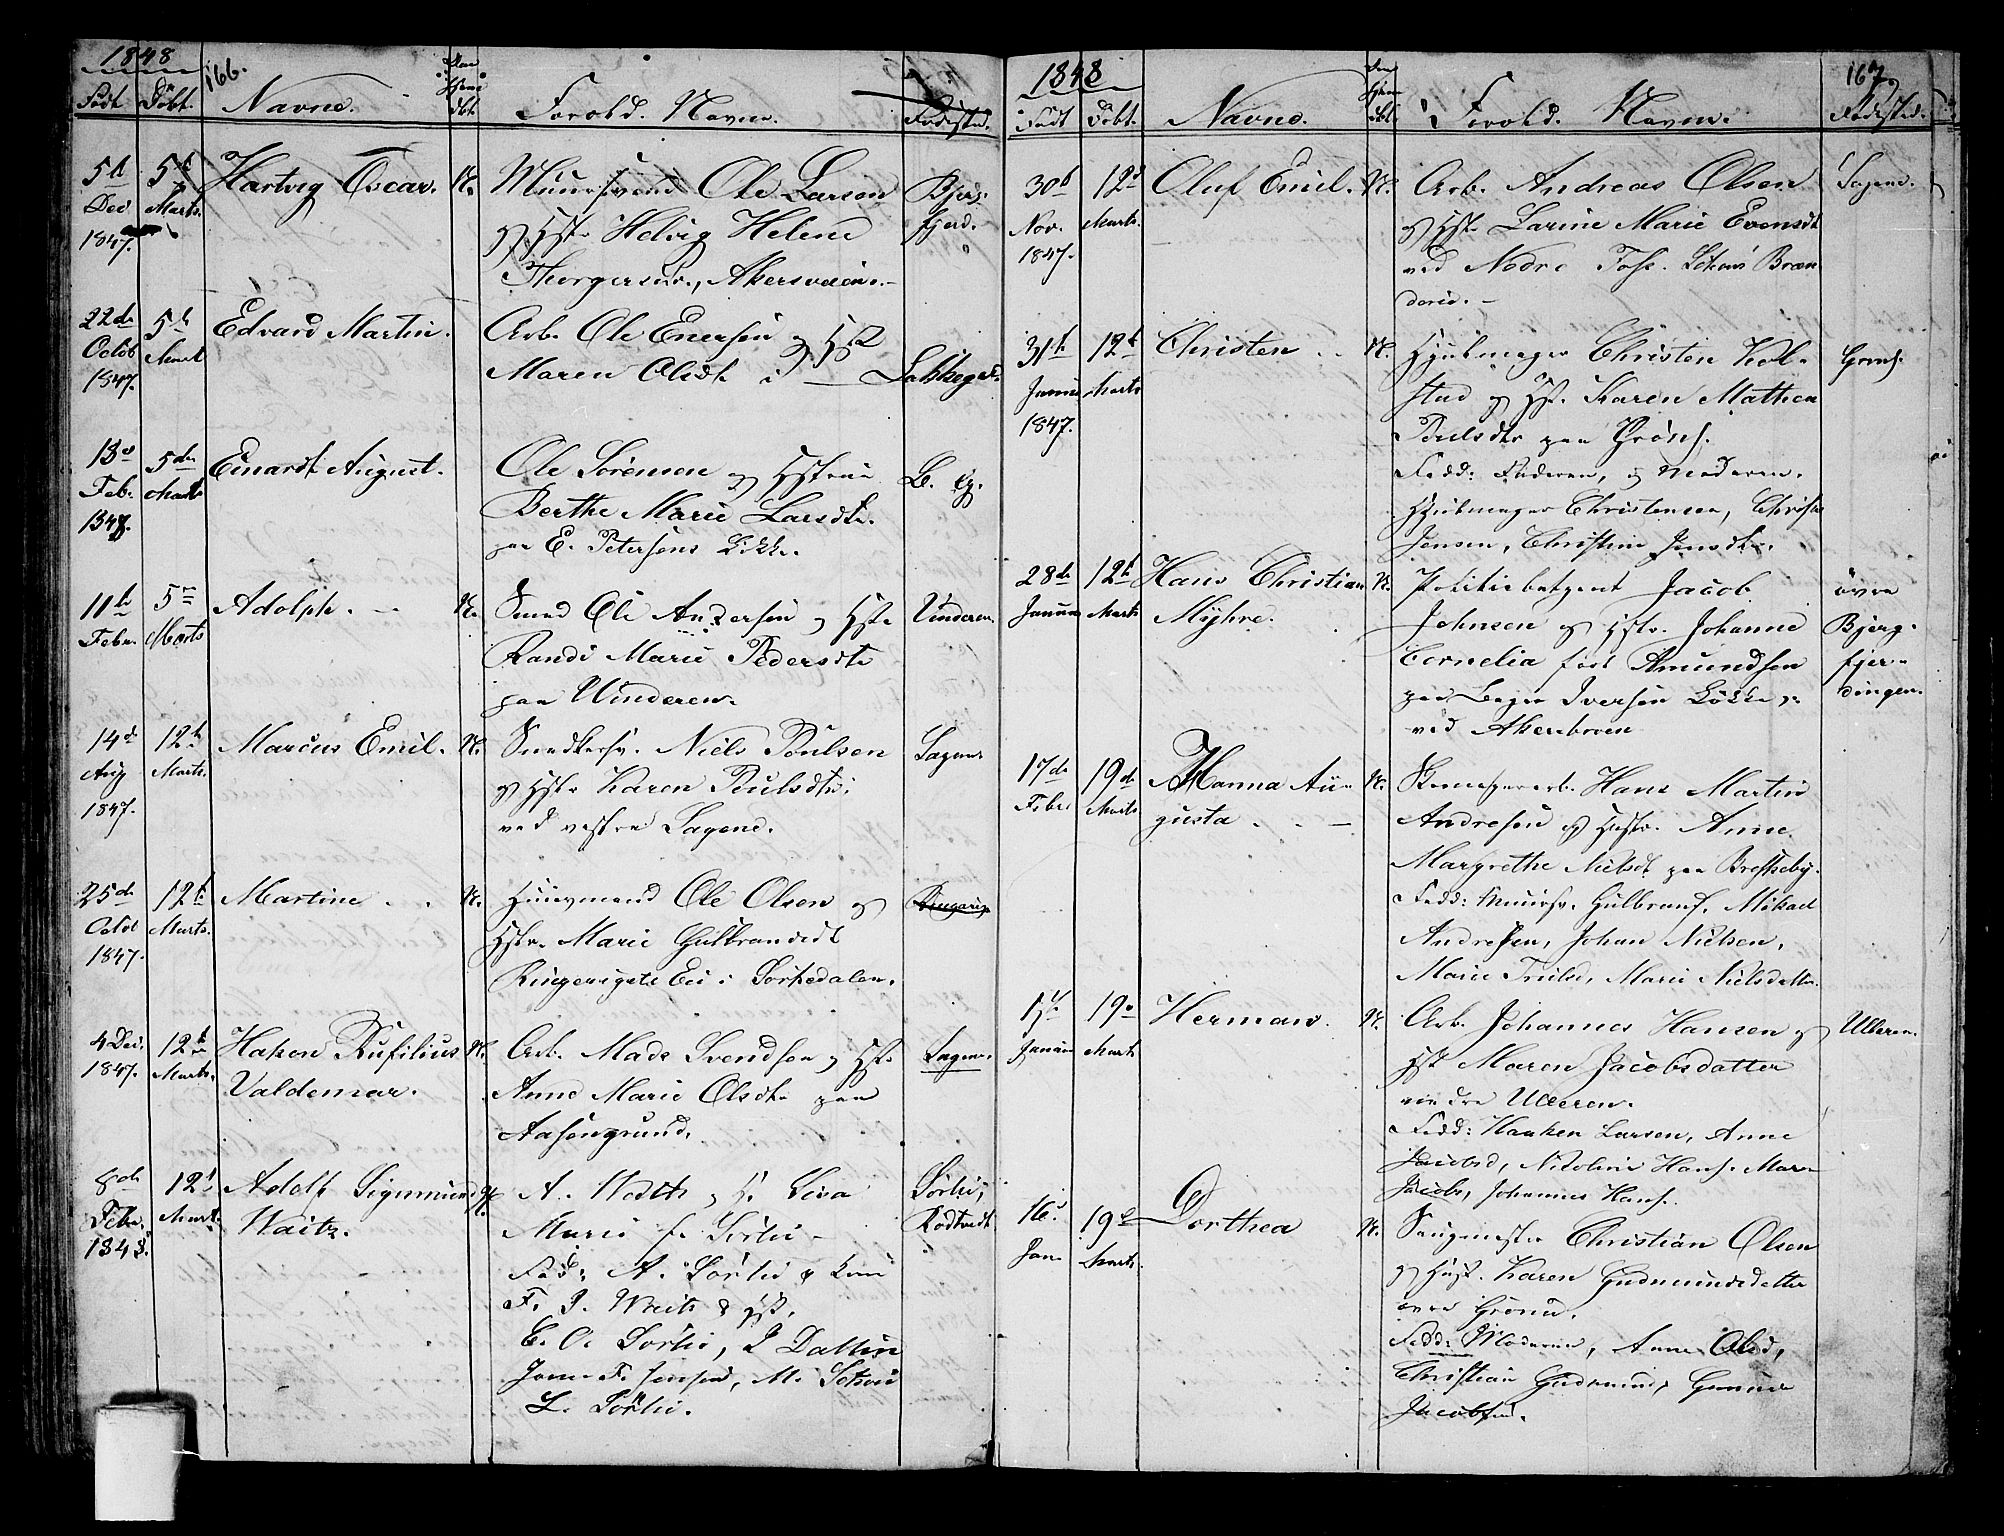 1848
166.
Födt
Döbt.
Navne.
Foræld. Navne.
Fødested.
5te Dec 1847.
5te Marts.
Hartvig Oscar.
N.
Muursvend Ole Larsen
og Hstr Helvig Helene
Thorgersen, Akersveien.
Bjerg-
fjerd.
22de Octob 1847.
5te Mart
Edvard Martin.
Arb. Ole Enersen og Hst
Maren Olsdt i
Lakkeg.
13 Feb. 1848.
5de Marts
Einardt August.
Ole Sörensen og Hstrue
Berthe Marie Larsdtr.
paa E. Petersens Lökke.
L. Eg.
11te Febr.
5 Marts
Adolph.
N.
Smed Ole Andersen og Hstr
Randi Marie Pedersdtr
paa Vinderen.
Vinderen.
14de Aug 1847.
12te Marts.
Marcus Emil.
N.
Snedkersv. Niels Poulsen
og Hstr Karen Poulsdtr
ved vestre Sagene.
Sagene
25de Octob 1847.
12te Marts.
Martine
N.
Huusmand Ole Olsen og
Hstr. Marie Gulbrandsdt
Ringerigets Eie i Sörkedalen.
Ringerig
4 Dec. 1847.
12te Marts.
Haken Rufilius
Valdemar.
N.
Arb. Mads Svendsen og Hstr
Anne Marie Olsdtr paa
Aasengrund.
Sagene.
8de Febr. 1848.
12te Mart.
Adolf Sigmund
Waitz.
N.
A. Waitz og H. Lisa
Marie f. Sörlie
Fad: A. Sörlie & Kone
F. P. Waitz & Hst.
C. O. Sörlie, P Dallin
Jome F. Jensen, M.
L. Sörlie.
Sörlie,
Rodtvedt
1848
167.
Födt
Döbt.
Navne.
Foræld. Navne.
Födested.
30te Nov. 1847.
12te Marts.
Oluf Emil.
N.
Arb. Andreas Olsen
og Hstr Larine Marie Evensdt
ved Nedre Fose. Bræn
deriet.
Sagene.
31te Januar 1847.
12te Marts
Christen
N.
Hjulmager Christen Kol-
stad og Hst. Karen Mathea
Poulsdtr paa Gröns.
Fadd: Faderen, og Moderen.
Hjulmager Christensen, Christen
Jensen, Christine Jensdtr.
Gröns.
28de Januar
12te Marts
Hans Christian
Myhre.
N.
Politiebetjent Jacob
Johnsen og Hstr. Johanne
Cornelia föd Amundsen
paa Bager Iversens Lökke
ved Akersbroen
övre
Bjerg-
fjer-
dingen.
17de Febr
19de Marts
Hanna Au-
gusta
N.
Hans Martin
Andresen og Hustr. Anne
Margrethe Nielsdt paa Briskeby.
Fadd: Muursv. Gulbrans. Mikael
Andresen, Johan Nielsen,
Marie Trulsd, Marie Nielsdatter
17 Januar
19 Marts
Herman.
N.
Arb. Johannes Hansen og
Hst Maren Jacobsdatter
nedre Ulleren.
Fadd: Haaken Larsen, Anne
Jacobsd, Nicoline Hans. Maren
Jacobs, Johannes Hans.
Ulleren.
16 Jan.
19de Marts.
Dorthea
N.
Saugmester Christian Olsen
og Hust. Karen Gudmundsdatter
Grönd.
Fadd: Moderen, Anne Olsd,
Christian Gudmund, Gunder
Jacobsen.